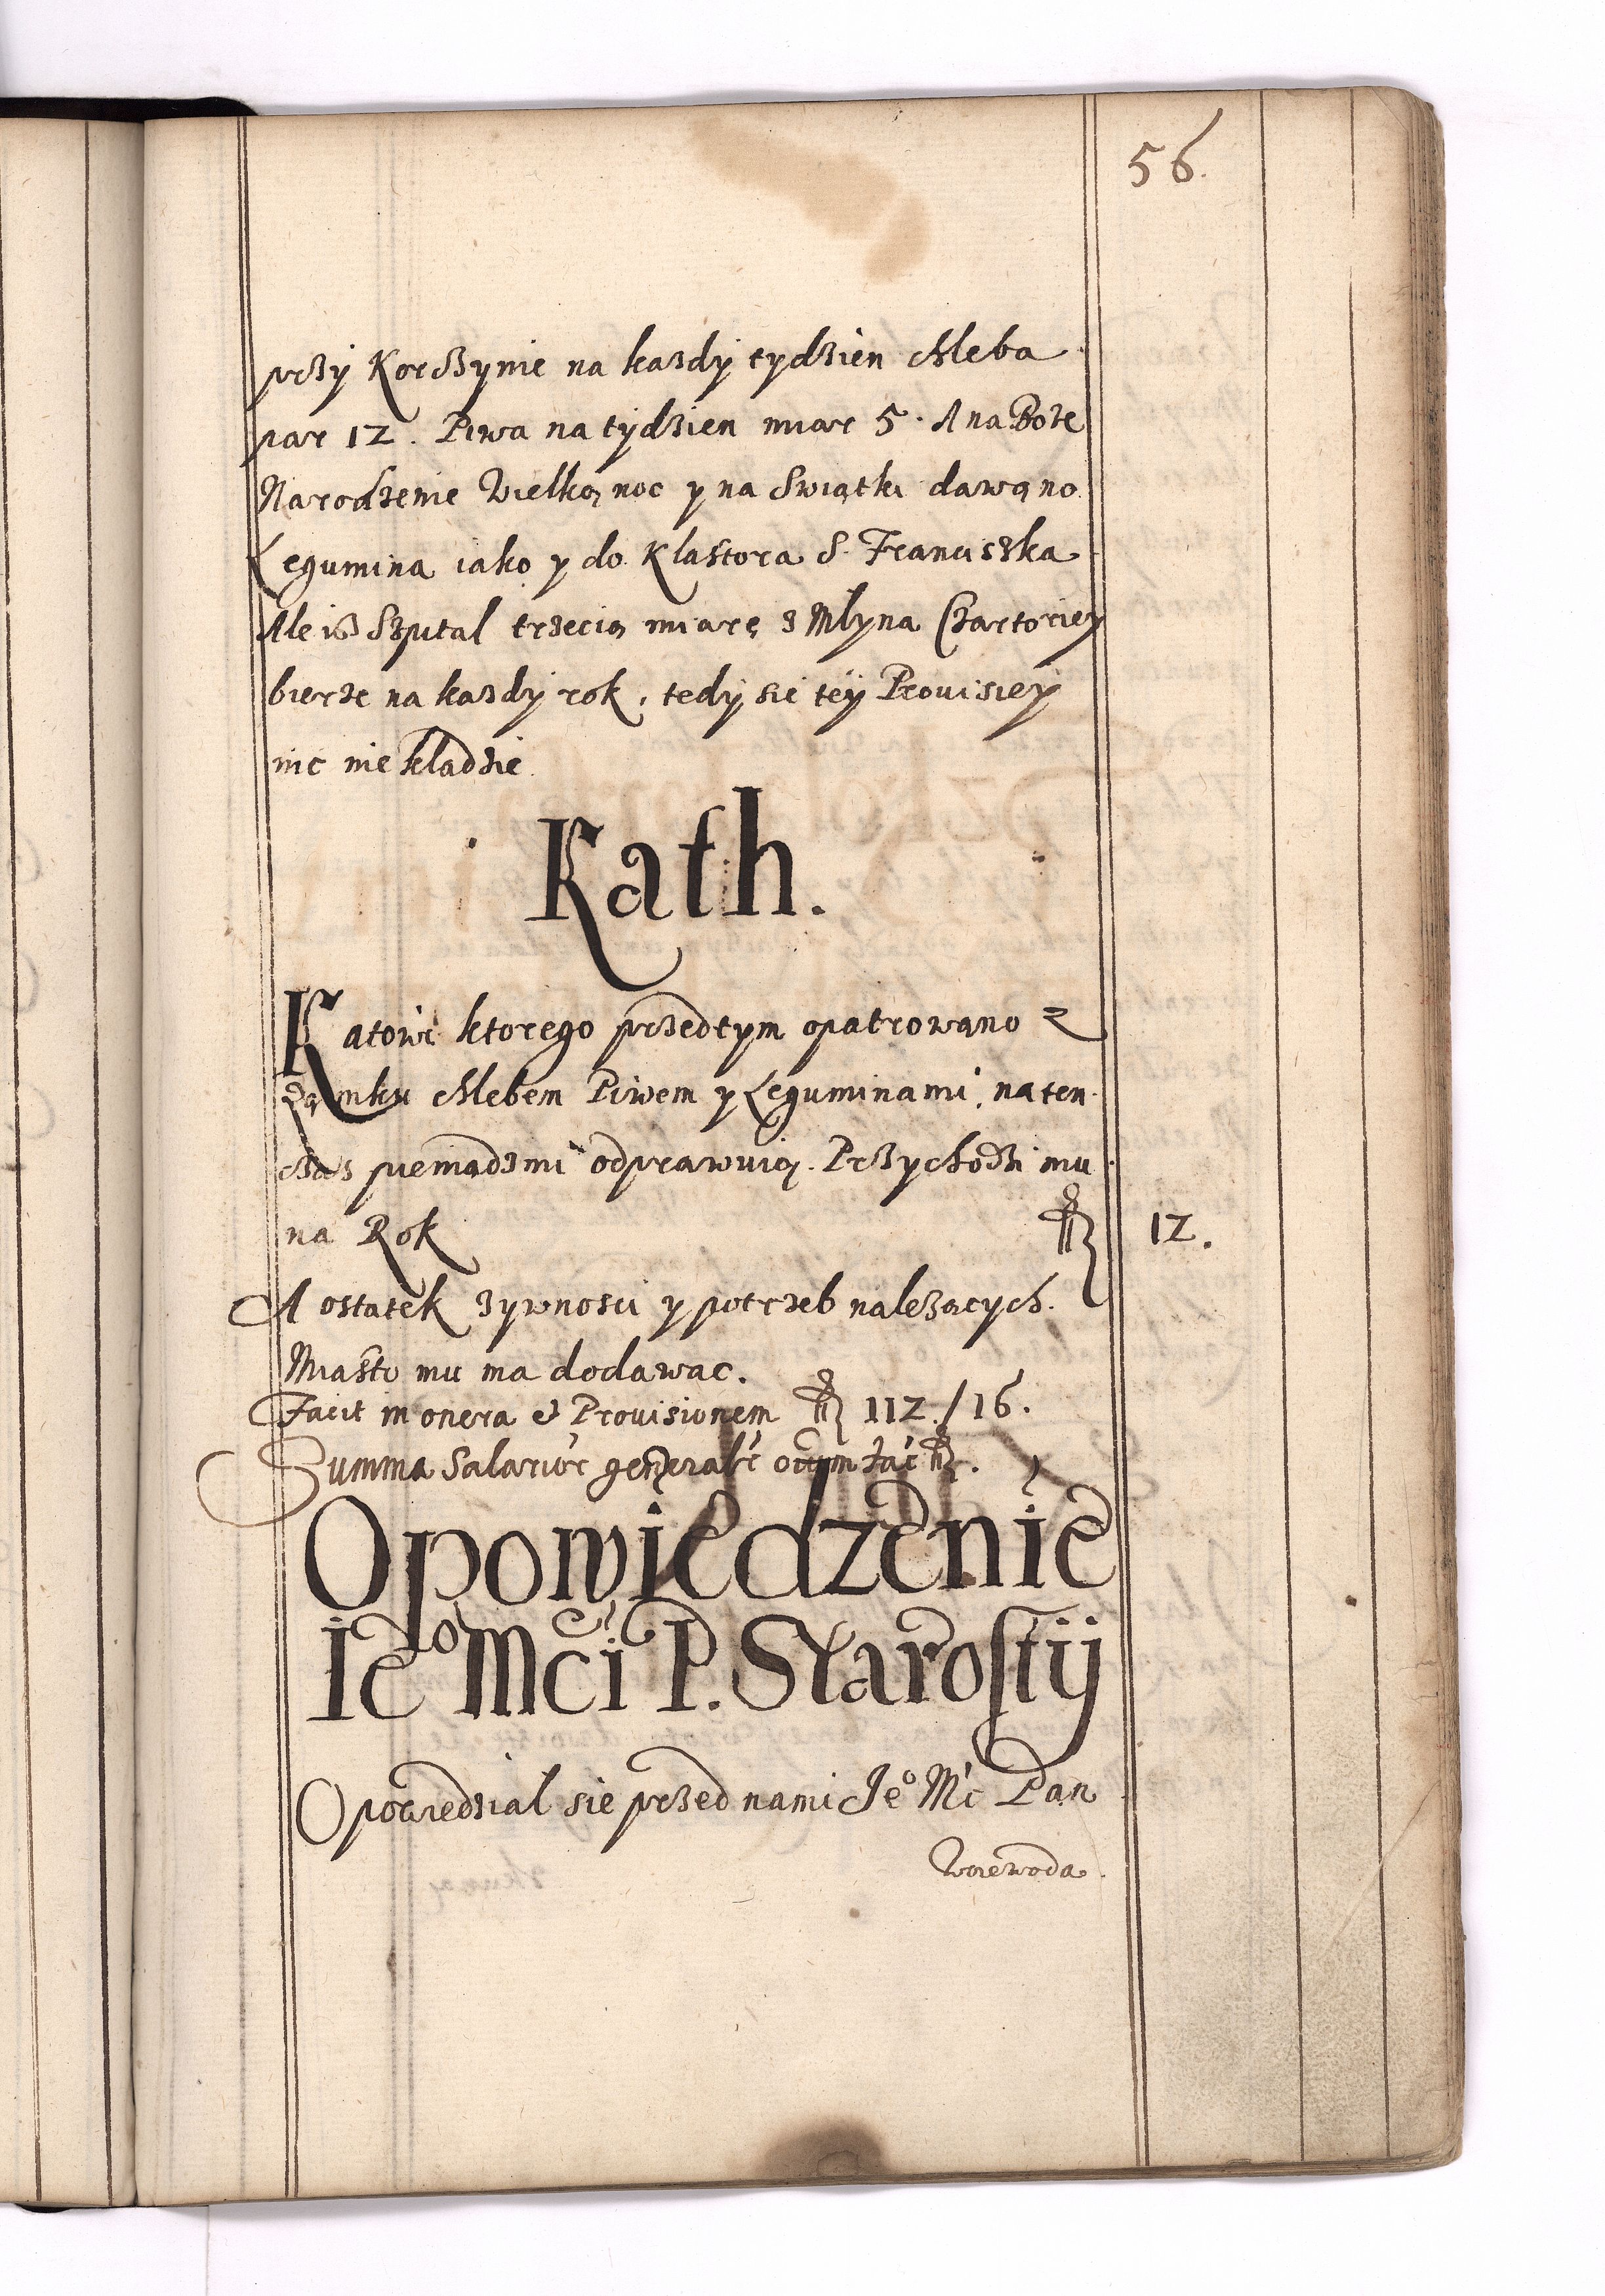 56.
przÿ Korczynie na kazdÿ tydzien chleba
par 12. Piwa na tÿdzien miar 5. A na Boze
Narodzenie Wielką noc y na Swiątki dawano
Legumina iako y do Klastora S. Franciszka
Ale iż Szpital trzecią miarę z Mlyna Czartoriey
bierze na kazdÿ rok, tedÿ sie teÿ Prouisieÿ
nic nie kladzie
Kath.
Katowi ktorego przedtym opatrowano z
Zamku chlebem Piwem y Leguminami, na ten
czas pieniądzmi odprawuią. Przychodzi mu
na Rok 12.
A ostatek zywnosci y potrzeb nalezacych
Miasto mu ma dodawac.
Facit in onera et Prouisionem 112./16.
Summa Salariorˀ
Opowiedzenie
Ieº Mci P. Starostÿ
Opowiedzial sie przed nami Jeº Mc Pan
Woiewoda